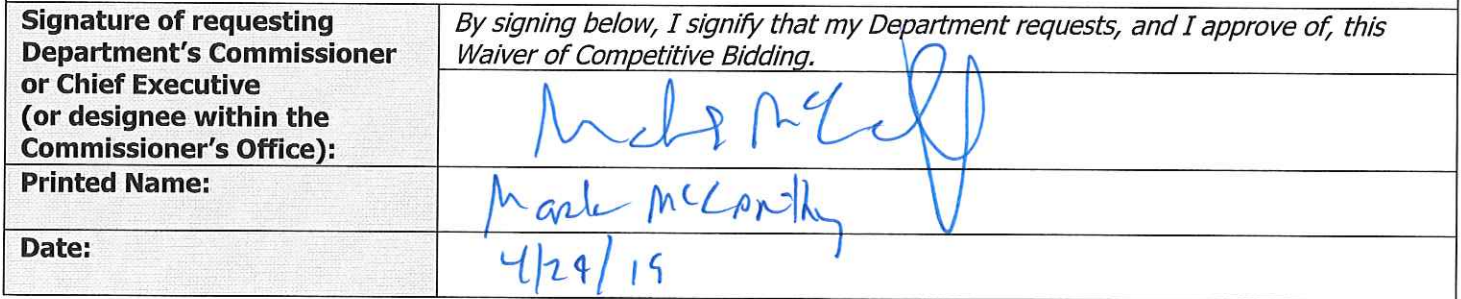 Signature of requesting
Department's Commissioner
or Chief Executive
(or designee within the
Commissioner's Office):
By signing below, I signify that my Department requests, and I approve of, this
Waiver of Competitive Bidding.
Printed Name:
Mark McCarthy
Date: